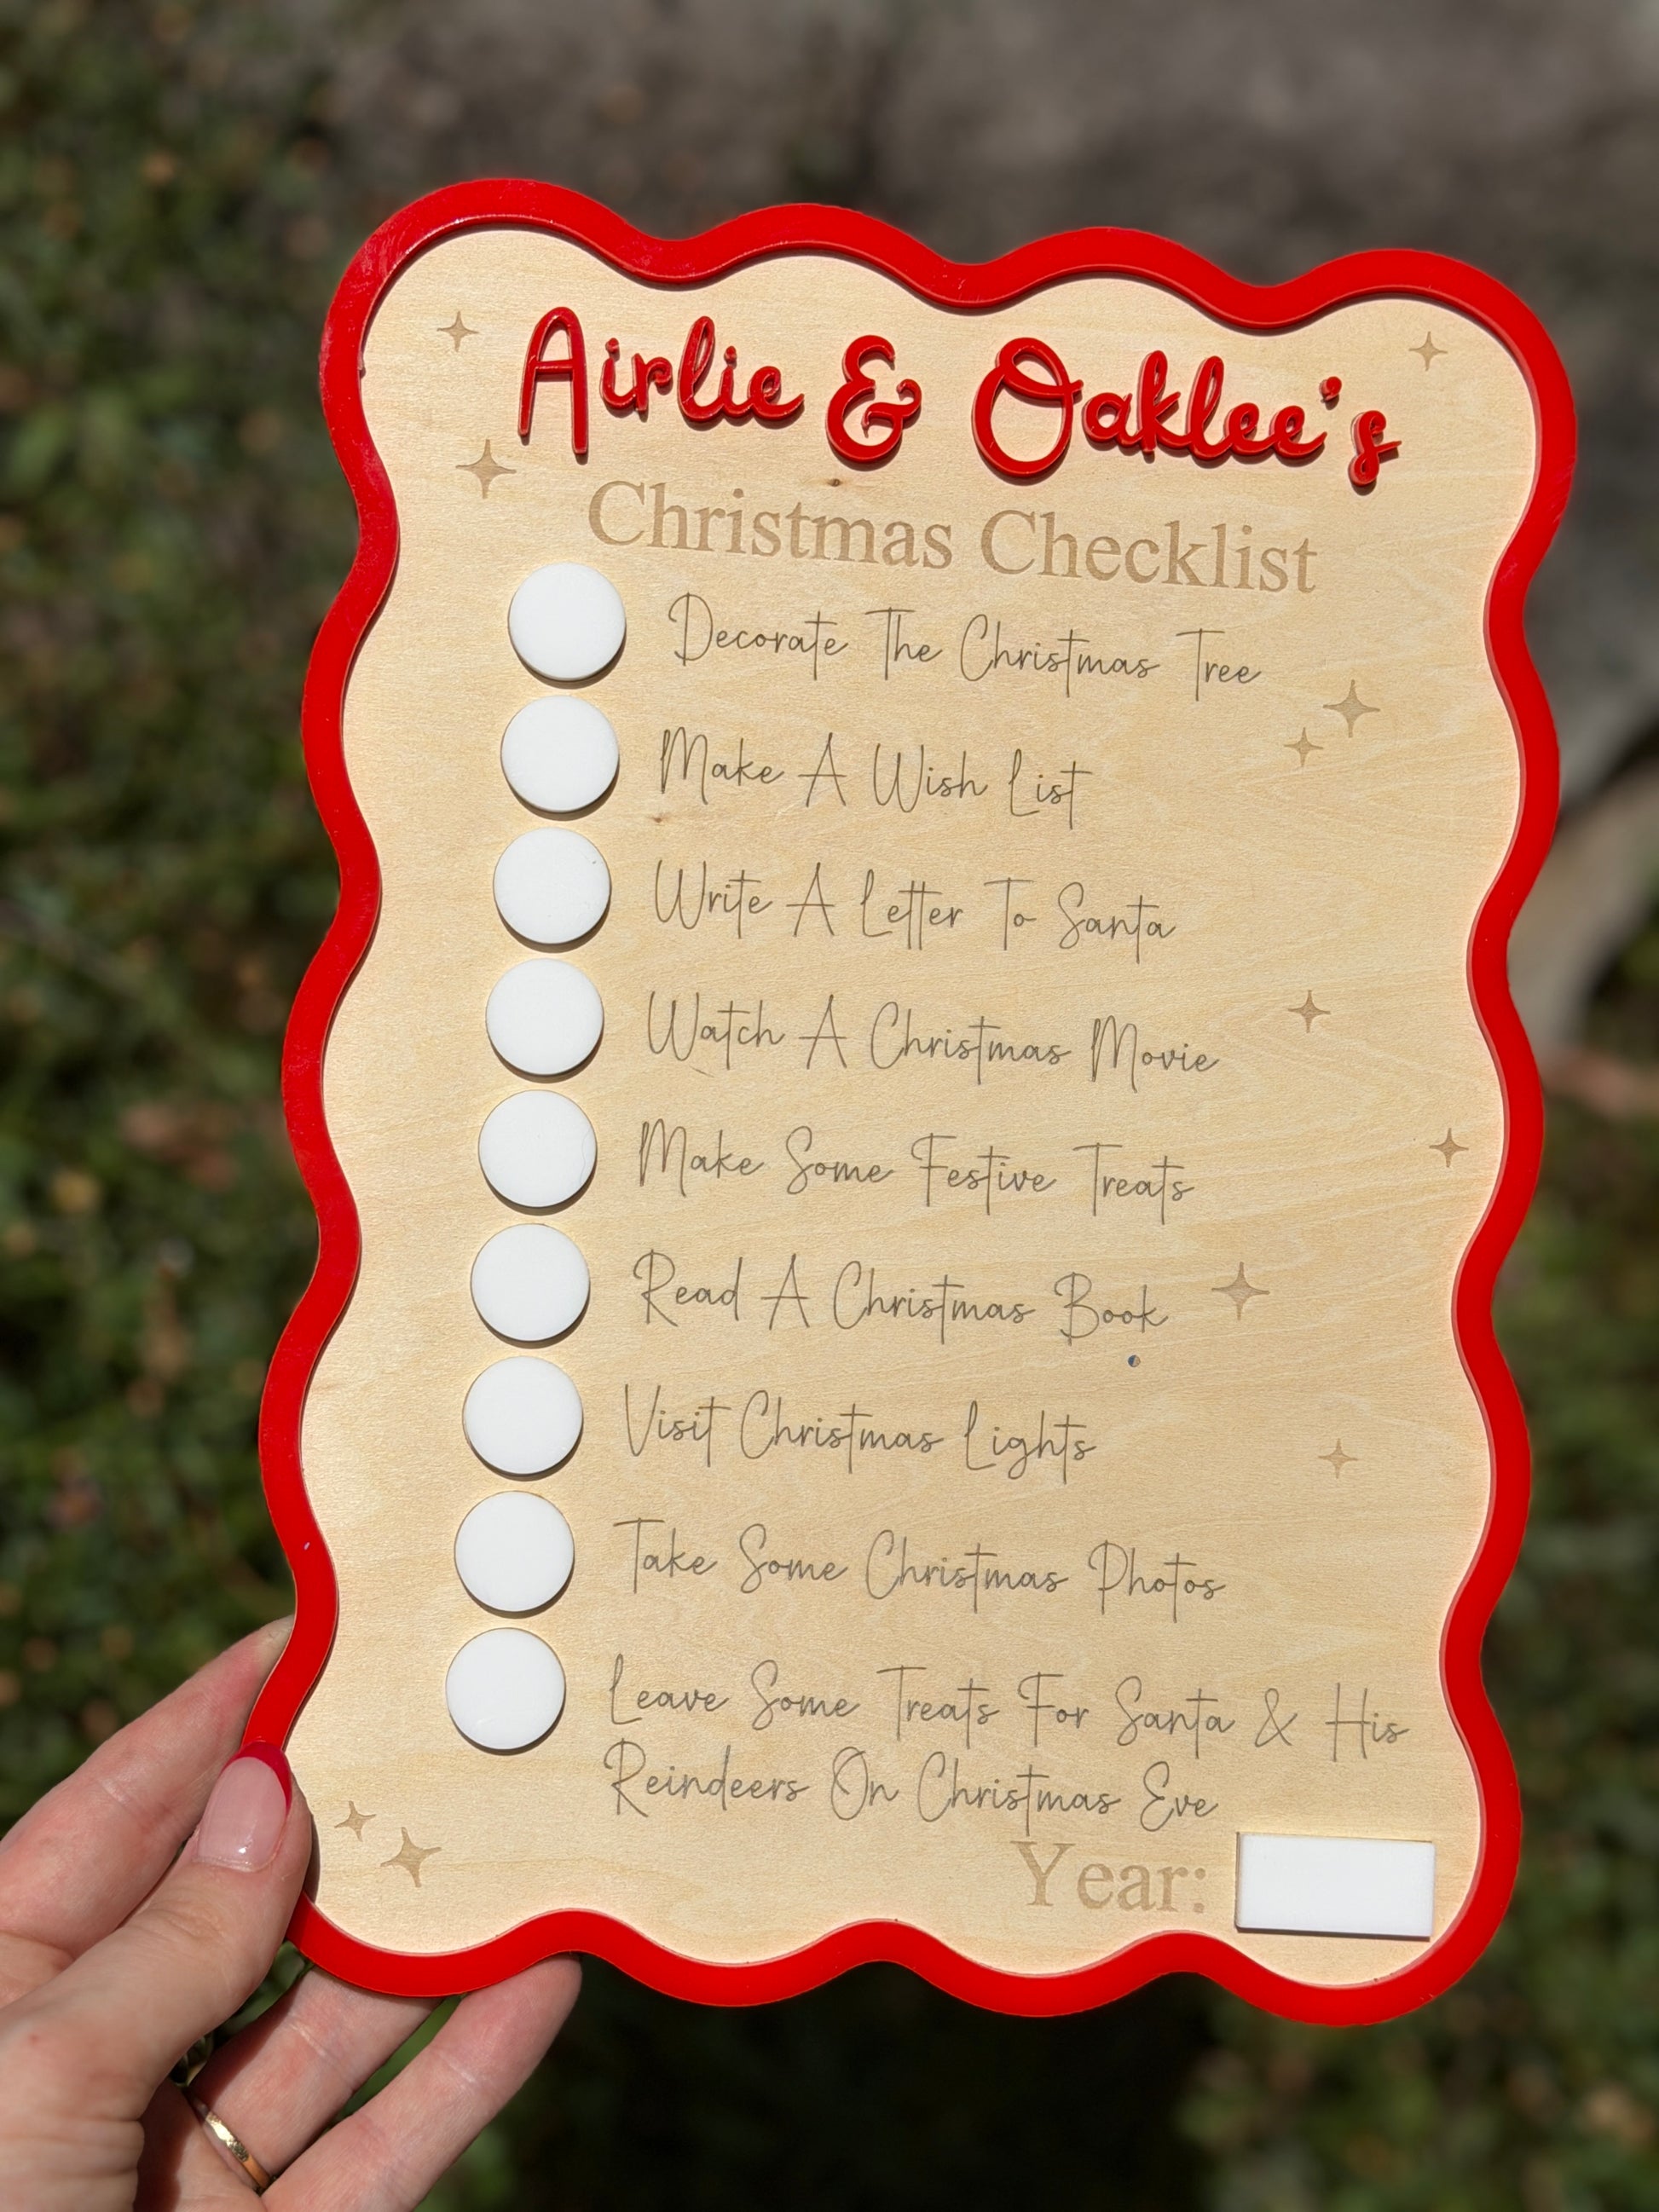 Airlie & Oaklee's
Christmas Checklist
Decorate The Christmas Tree
Make A Wish List
Write A Letter To Santa
Watch A Christmas Movie
Make Some Festive Treats
Read A Christmas Book
Visit Christmas Lights
Take Some Christmas Photos
Leave Some Treats For Santa & His
Reindeers On Christmas Eve
Year: